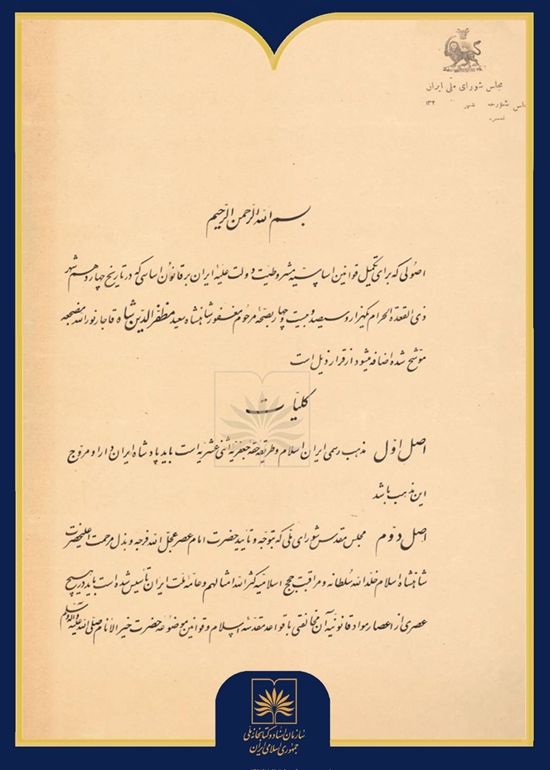 مجلس شورای ملی ایران
بسم الله الرحمن الرحیم
اصولی که برای تکمیل قوانین اساسیه مشروطیت دولت علیه ایران بر قانون اساسی که در تاریخ چهاردهم شهر
ذی القعدة الحرام یکهزار و سیصد و بیست و چهار بصحه مرحوم مغفور شاهنشاه سعید مظفرالدین شاه قاجار نورالله مضجعه
موشح شده اضافه میشود از قرار ذیل است
کلیات
اصل اول مذهب رسمی ایران اسلام و طریقه حقه جعفریه اثنی عشریه است باید پادشاه ایران دارا و مروج
این مذهب باشد
اصل دوم مجلس مقدس شورای ملی که بتوجه و تایید حضرت امام عصر عجل الله فرجه و بذل مرحمت اعلیحضرت
شاهنشاه اسلام خلدالله سلطانه و مراقبت حجج اسلامیه کثرالله امثالهم و عامه ملت ایران تاسیس شده است باید در هیچ
عصری از اعصار مواد قانونیه آن مخالفتی با قواعد مقدسه اسلام و قوانین موضوعه حضرت خیرالانام صلی الله علیه و آله و سلم
سازمان اسناد و کتابخانه ملی
جمهوری اسلامی ایران